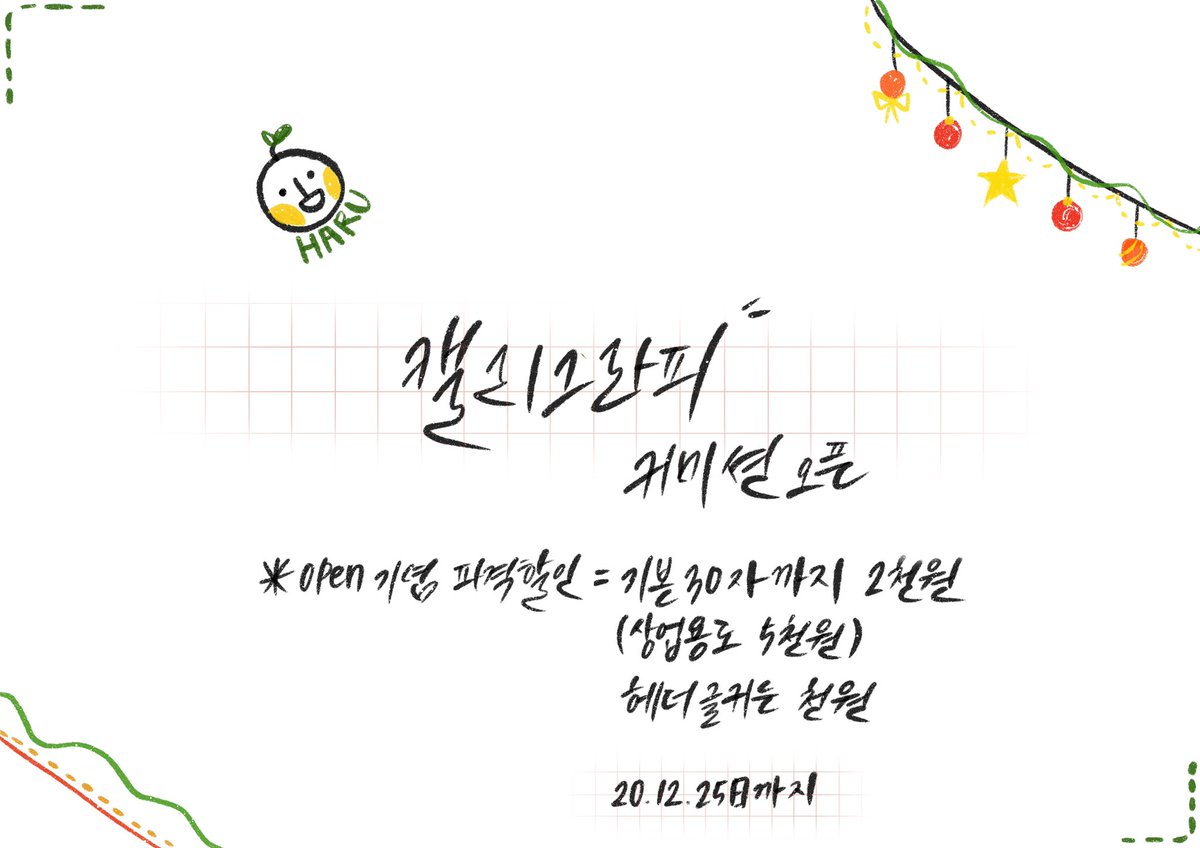 HARU
캘리그라피
커미션 오픈
*open 기념 파격할인 = 기본 30자까지 2천원
(상업용도 5천원)
헤더글귀는 천원
20.12.25日까지